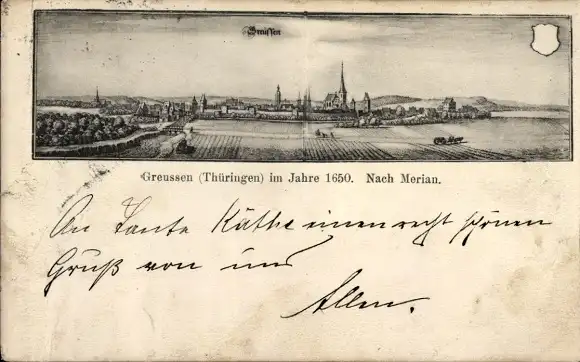 Greussen
Greussen (Thüringen) im Jahre 1650. Nach Merian.
An Tante Käthe einen recht schönen
Gruß von uns
Allen.